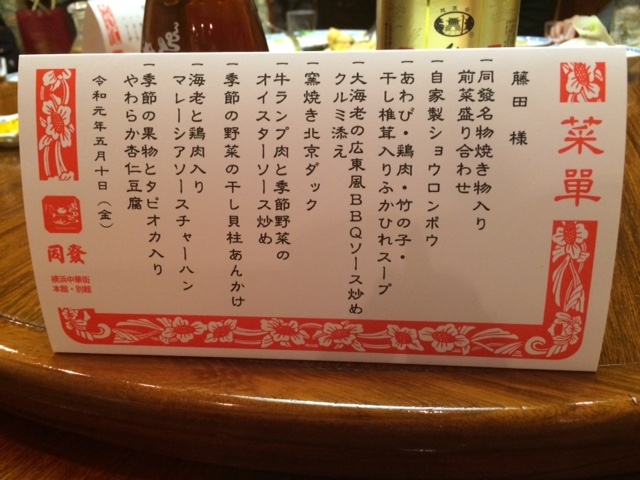 菜單
藤田 様
一同發名物焼き物入り
前菜盛り合わせ
一自家製ショウロンポウ
一あわび・鶏肉・竹の子・
干し椎茸入りふかひれスープ
一大海老の広東風BBQソース炒め
クルミ添え
一窯焼き北京ダック
一牛ランプ肉と季節野菜の
オイスターソース炒め
一季節の野菜の干し貝柱あんかけ
一海老と鶏肉入り
マレーシアソースチャーハン
一季節の果物とタピオカ入り
やわらか杏仁豆腐
令和元年五月十日(金)
同發
横浜中華街
本館・別館